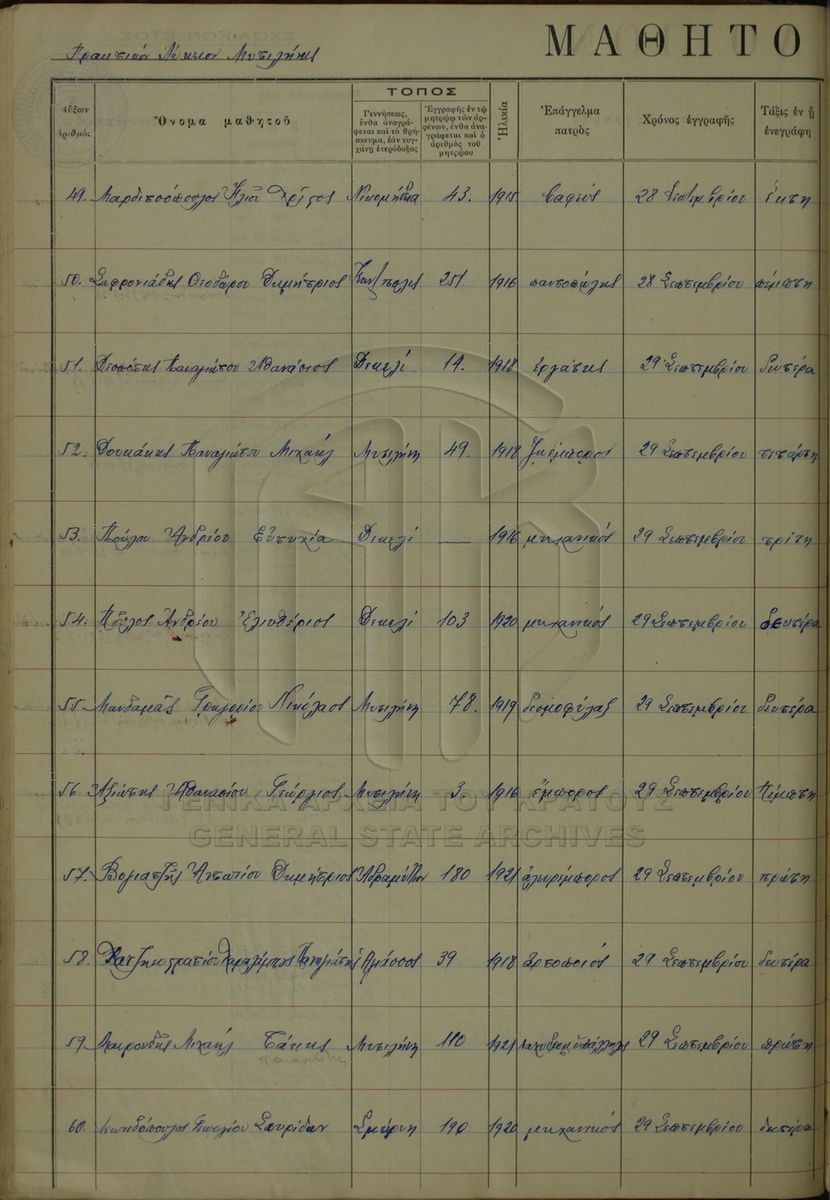 Πρακτικόν Λύκειον Μυτιλήνης
ΜΑΘΗΤΟ
Αὔξων ἀριθμός
Ὄνομα μαθητοῦ
ΤΟΠΟΣ
Γεννήσεως, ἔνθα ἀναγράφεται καὶ τὸ θρήσκευμα, ἐὰν τυγχάνῃ ἑτερόδοξος
Ἐγγραφῆς ἐν τῷ μητρῴῳ τῶν ἀρρένων, ἔνθα ἀναγράφεται καὶ ὁ ἀριθμὸς τοῦ μητρῴου
Ἡλικία
Ἐπάγγελμα πατρὸς
Χρόνος ἐγγραφῆς
Τάξις ἐν ᾗ ἐνεγράφη
49. Νικομήδεια 43. 1915 βαφεύς 28 Σεπτεμβρίου ἕκτη
50. Σωφρονιάδης Θεοδώρου Δημήτριος Κων/πολις 251. 1916 παντοπώλης 28 Σεπτεμβρίου πέμπτη
51. Δεσπότης Παναγιώτου Ἀθανάσιος Δικελί 14. 1918 ἐργάτης 29 Σεπτεμβρίου δευτέρα
52. Δουκάκης Παναγιώτου Μιχαήλ Μυτιλήνη 49. 1918 ζωέμπορος 29 Σεπτεμβρίου τετάρτη
53. Πούλου Ἀνδρέου Εὐτυχία Δικελί — 1916 μηχανικός 29 Σεπτεμβρίου τρίτη
54. Ἀνδρέου Ἐλευθέριος Δικελί 103 1920 μηχανικός 29 Σεπτεμβρίου δευτέρα
55. Μανδαμᾶς Γρηγορίου Νικόλαος Μυτιλήνη 78. 1919 δεσμοφύλαξ 29 Σεπτεμβρίου δευτέρα
56 Ἀξιώτης Ἀθανασίου Γεώργιος Μυτιλήνη 3. 1916 ἔμπορος 29 Σεπτεμβρίου πέμπτη
ΓΕΝΙΚΑ ΑΡΧΕΙΑ ΤΟΥ ΚΡΑΤΟΥΣ
GENERAL STATE ARCHIVES
57. Βογιατζῆς Ἀντωνίου Δημήτριος Ἀδραμύττιον 180 1921 ἀλευρέμπορος 29 Σεπτεμβρίου πρώτη
58. Χατζηευστρατίου Παναγιώτης 39 1918 ἀρτοποιός 29 Σεπτεμβρίου δευτέρα
59. Μιχαήλ Μυτιλήνη 110 1921 29 Σεπτεμβρίου πρώτη
60. Γεωργίου Σπυρίδων Σμύρνη 190 1920 μηχανικός 29 Σεπτεμβρίου δευτέρα